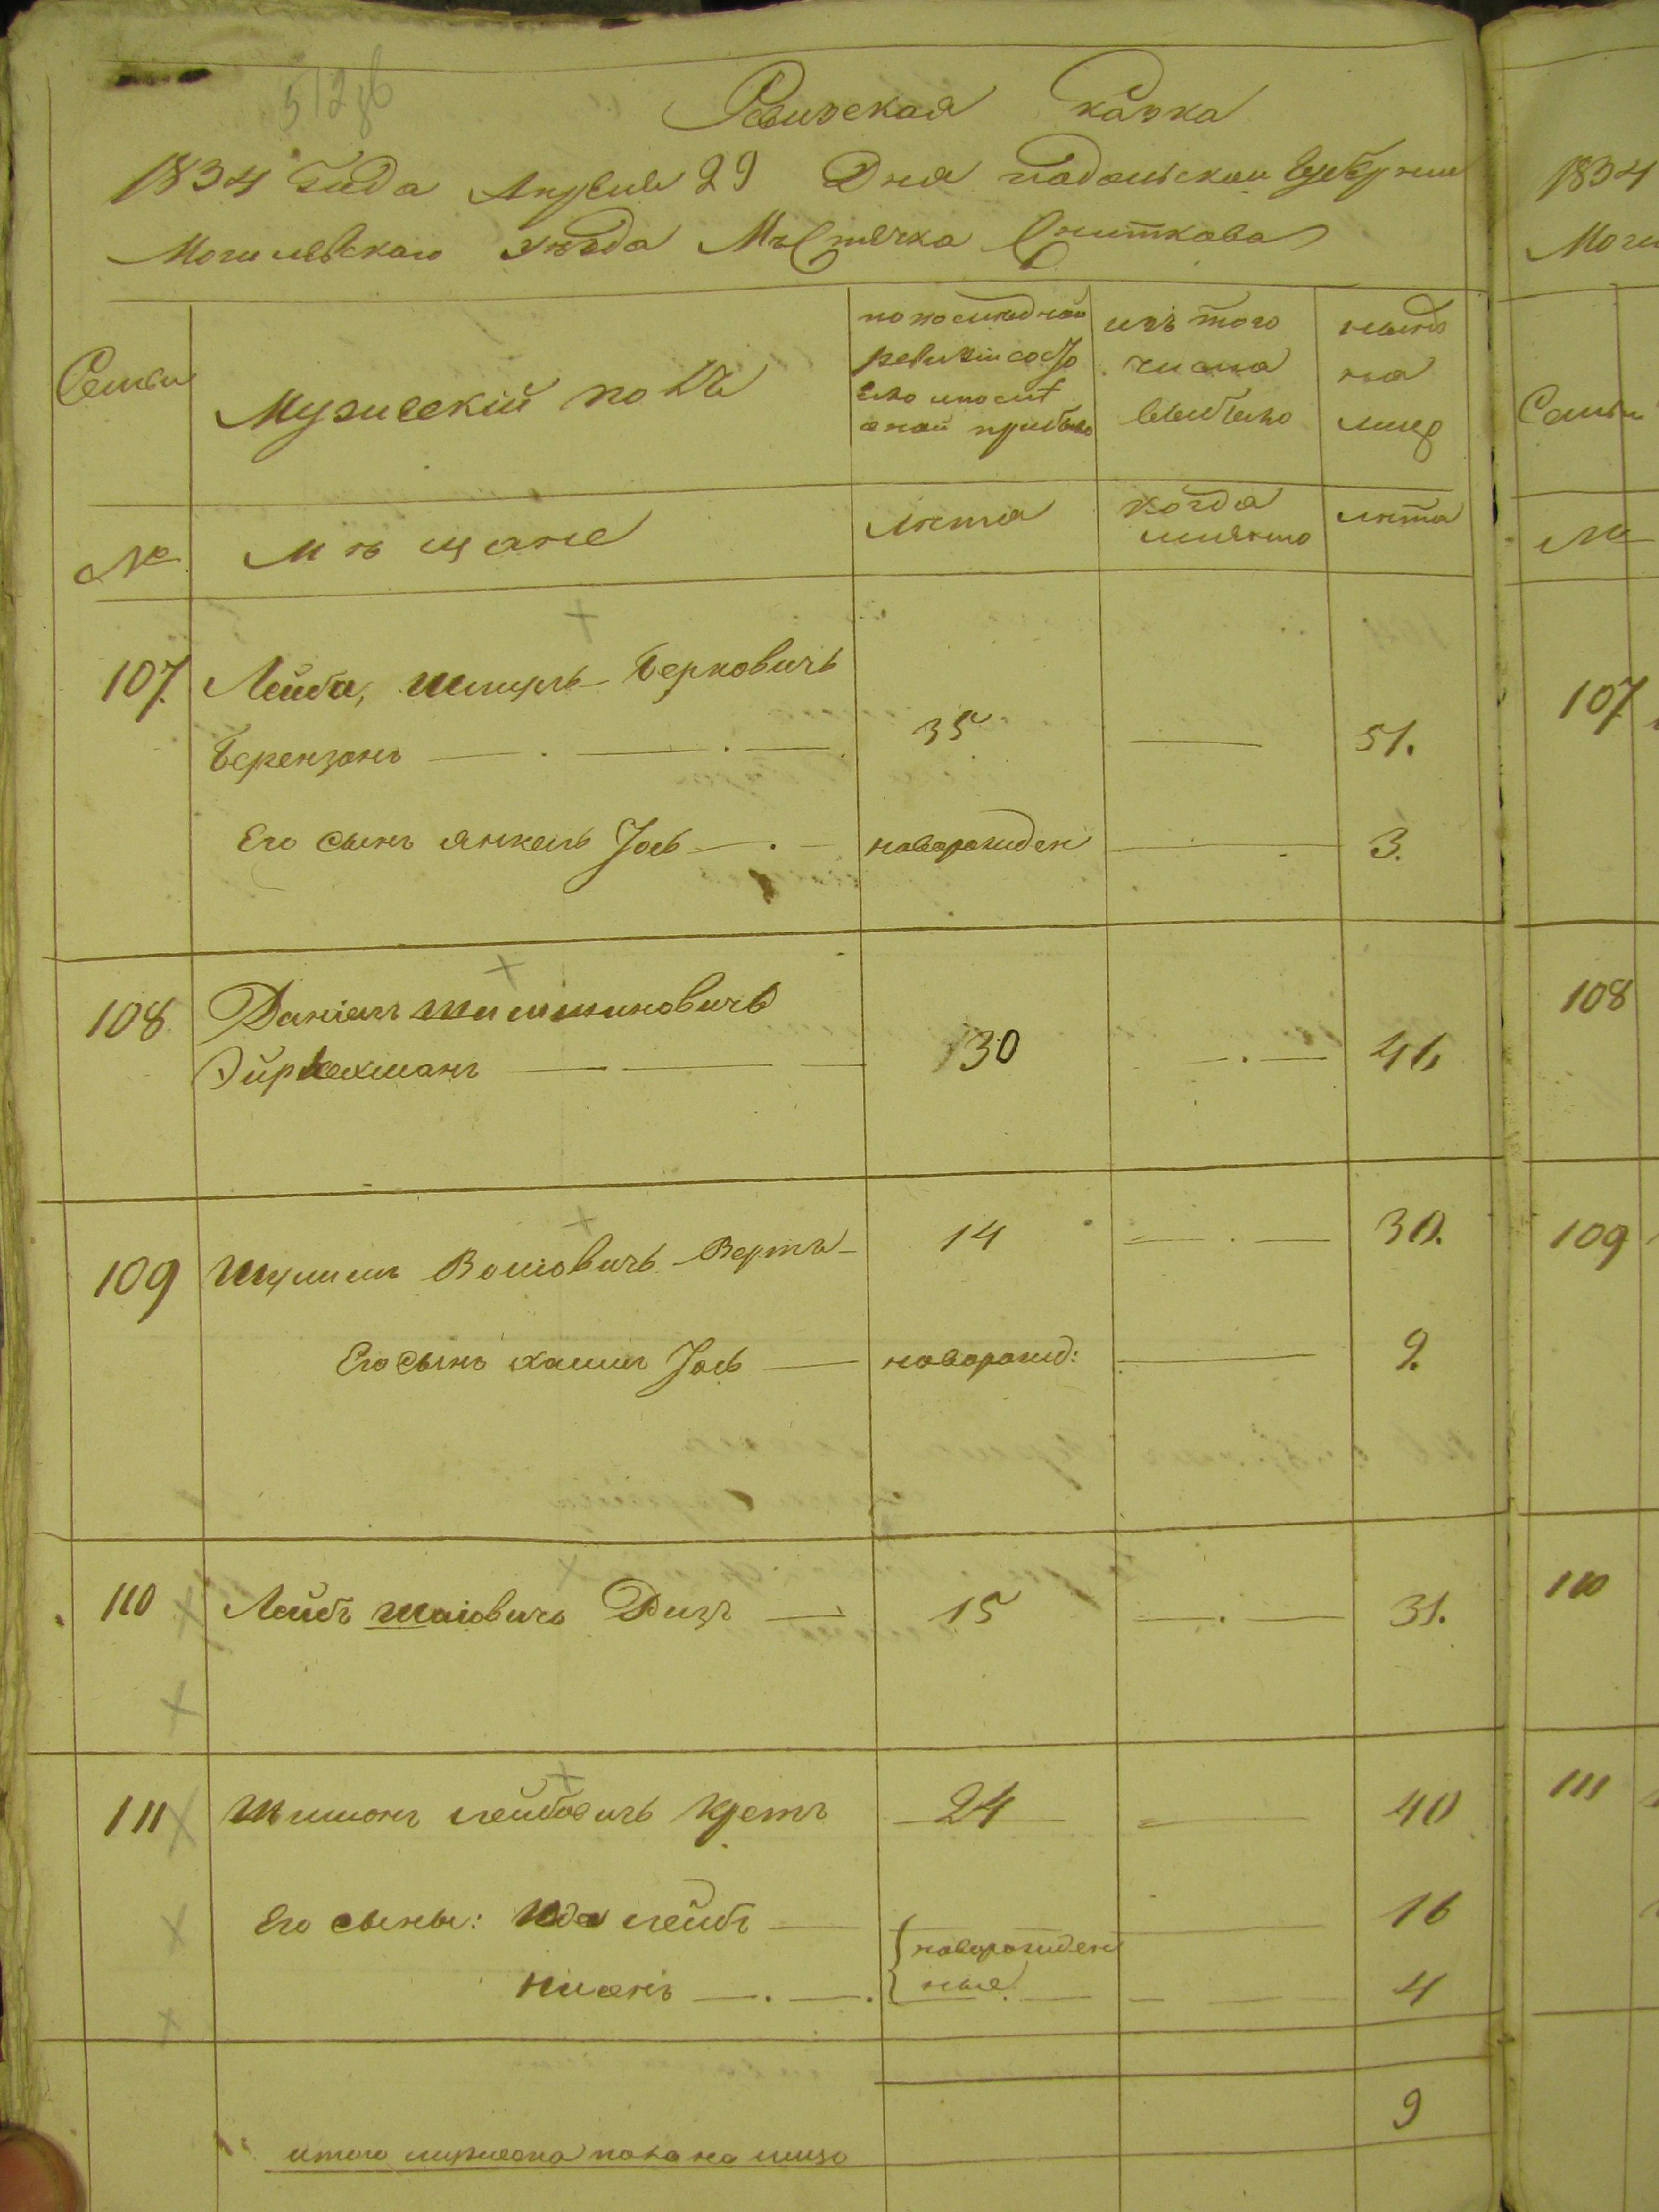 Ревизская сказка
1834 года Апреля 29 Дня подольской Губернии
Могилевскаго уезда Мѣстечка Сниткова
Семьи
Мужеский полъ
по последней ревизии состояло и после оной прибыло
изъ того числа выбыло
ныне на лицо
№
Мѣщане
лѣта
когда именно
лѣта
107. Лейба, Шмуль Берковичъ
Берензонъ 35 51.
Его сынъ Янкель Іось новорожден 3.
108 Даніелъ
30 46
109 Шулимъ Вертъ 14 30.
Его сынъ хаимъ Іось новорожд: 9.
110 Лейбъ Шаіовичъ Дизъ 15 31.
111 Шимонъ лейбовичъ Кретъ 24 40
Его сыны: Идо лейбъ 16
новорожденные
нисенъ 4
9
итого мужеска пола на лицо
1834
Моги
Семьи
№
107
108
109
110
111